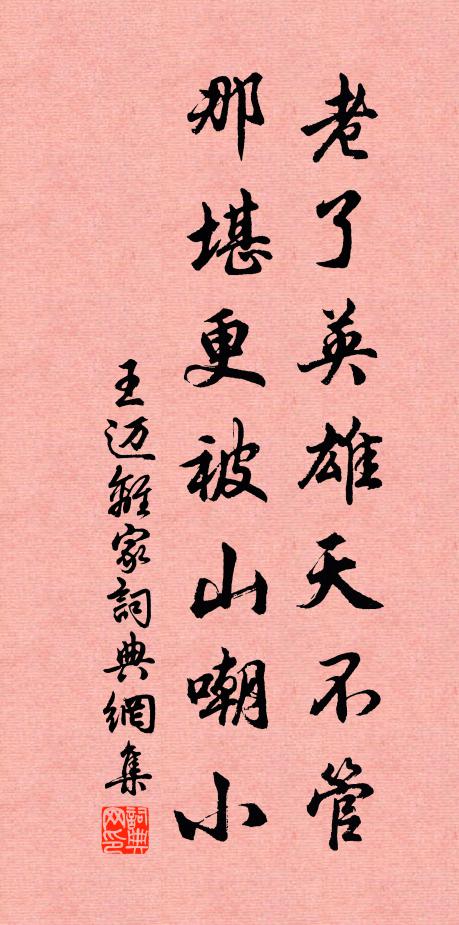 老了英雄天不管
那堪更被山嘲小
王迈離家詞典網集
詞典
网印